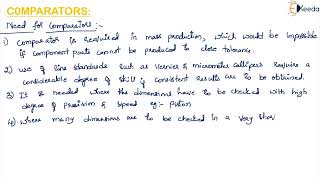 COMPARATORS:
Ekeeda
Need for Comparators :-
1) Comparator is required in mass production, which would be impossible
if component parts cannot be produced to close tolerance.
2) use of line standards such as vernier & micrometer callipers require a
considerable degree of skill if consistent results are to be obtained.
3) It is needed where the dimensions have to be checked with high
degree of precision & speed eg:- piston
4) Where many dimensions are to be checked in a very short